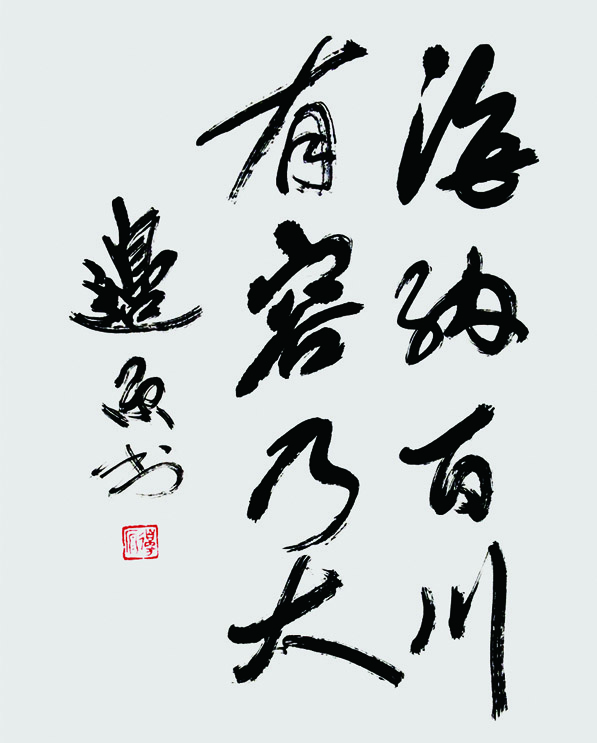 海纳百川
有容乃大